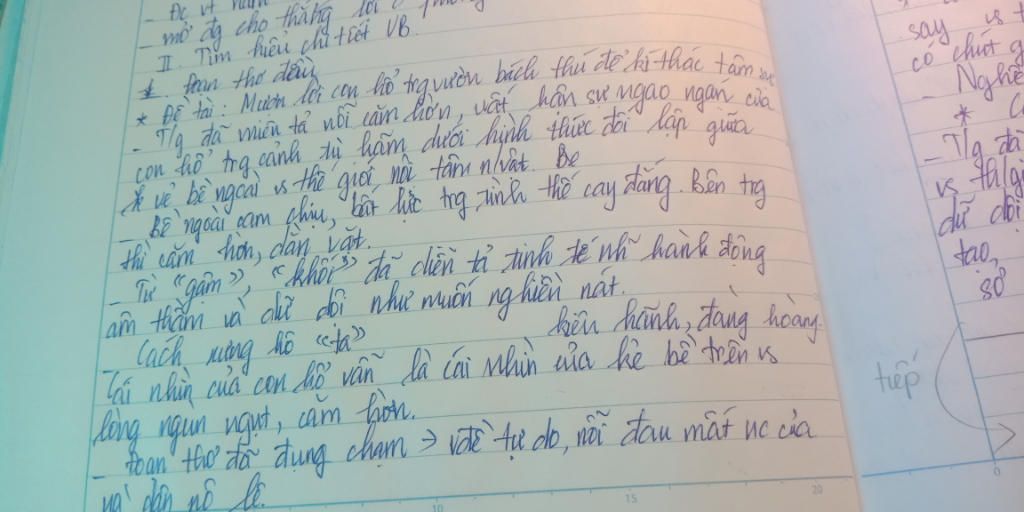 - Đc vt
- mở đg cho thắng lợi
II. Tìm hiểu chi tiết VB.
1. Đoạn thơ đầu
* Đề tài: Mượn lời con hổ trg vườn bách thú để kí thác tâm sự
- T/g đã miêu tả nỗi căm hờn, vất hẳn sự ngao ngán của
con hổ trg cảnh tù hãm dưới hình thức đối lập giữa
vẻ bề ngoài vs thế giới nội tâm n/vật. Be
- Bề ngoài cam chịu, bất lực trg tình thế cay đắng. Bên trg
thì căm hờn, dằn vặt.
- Từ "gậm", "khối" đã diễn tả tinh tế nhữ hành động
âm thầm và dữ dội như muốn nghiền nát.
- Cách xưng hô "ta" kiêu hãnh, đàng hoàng.
- Cái nhìn của con hổ vẫn là cái nhìn của kẻ bề trên vs
lòng ngùn ngụt, căm hờn.
- Đoạn thơ đã đụng chạm → vđề tự do, nỗi đau mất nc của
ng` dân nô lệ.
say vs t
có chút g
- Nghệ
*
- T/g đã
vs th/gi
dữ dội
tạo,
số
tiếp
10
15
20
0